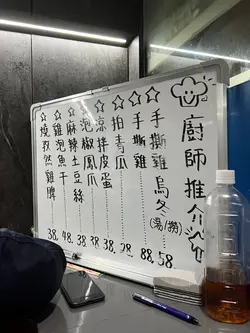 廚師推介
手撕雞烏冬(湯/撈) 58.
手撕雞 88.
拍青瓜 28.
涼拌皮蛋 38.
泡椒鳳爪 38
麻辣土豆絲 38
雞泡魚干 48.
燒孜然雞脾 38.